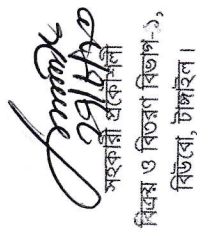 সহকারী প্রকৌশলী
বিক্রয় ও বিতরণ বিভাগ-১,
বিউবো, টাঙ্গাইল।